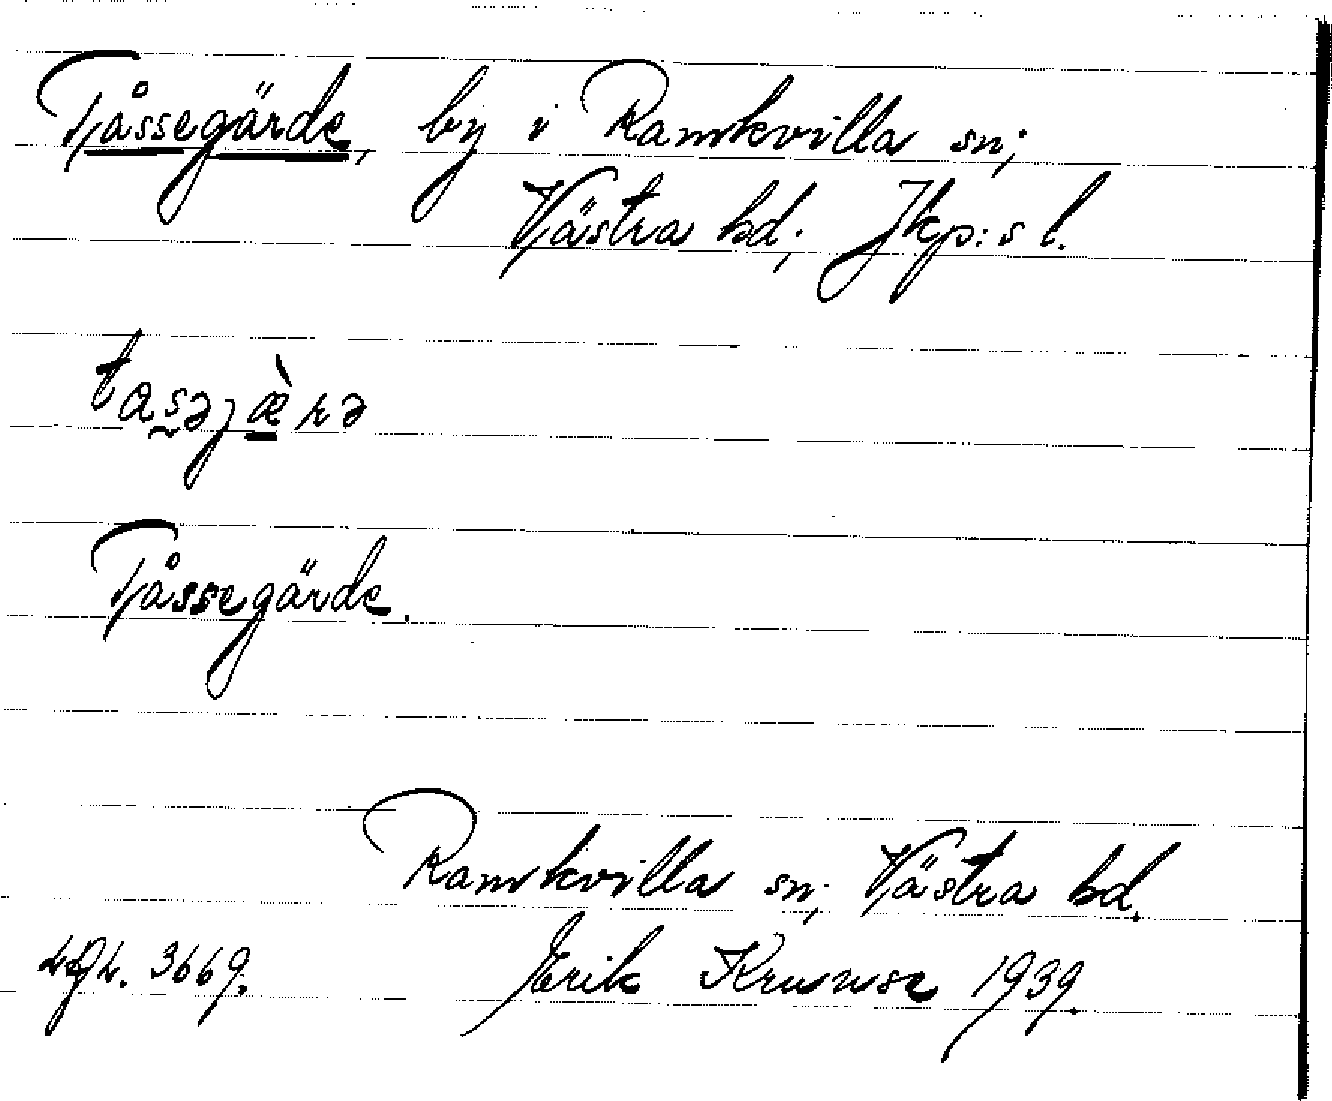 Tåssegärde, by i Ramkvilla sn;
Västra hd; Jkp:s l.
tasəjæ̀rə
Tåssegärde.
Ramkvilla sn; Västra hd.
3669.
Erik Krusnse 1939.